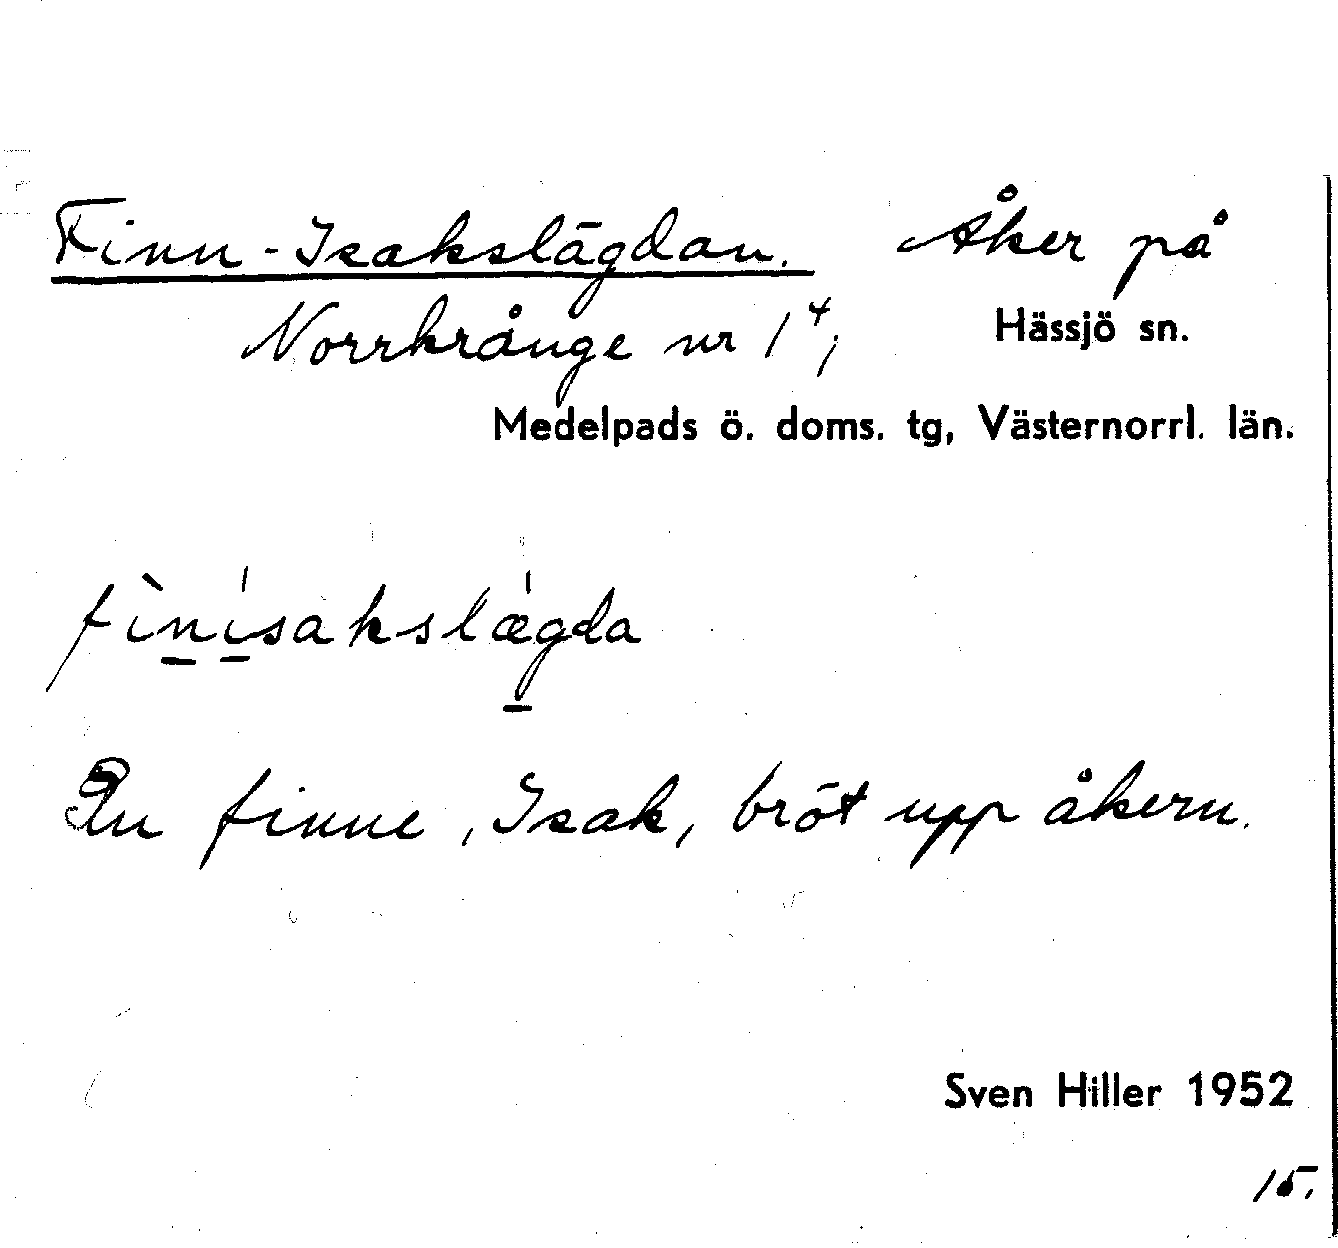 Finn-Isakslägdan. Åker på
Norrkrånge nr 1⁴; Hässjö sn.
Medelpads ö. doms. tg, Västernorrl. län.
fìnísakslǽgda
En finne, Isak, bröt upp åkern.
Sven Hiller 1952
15.